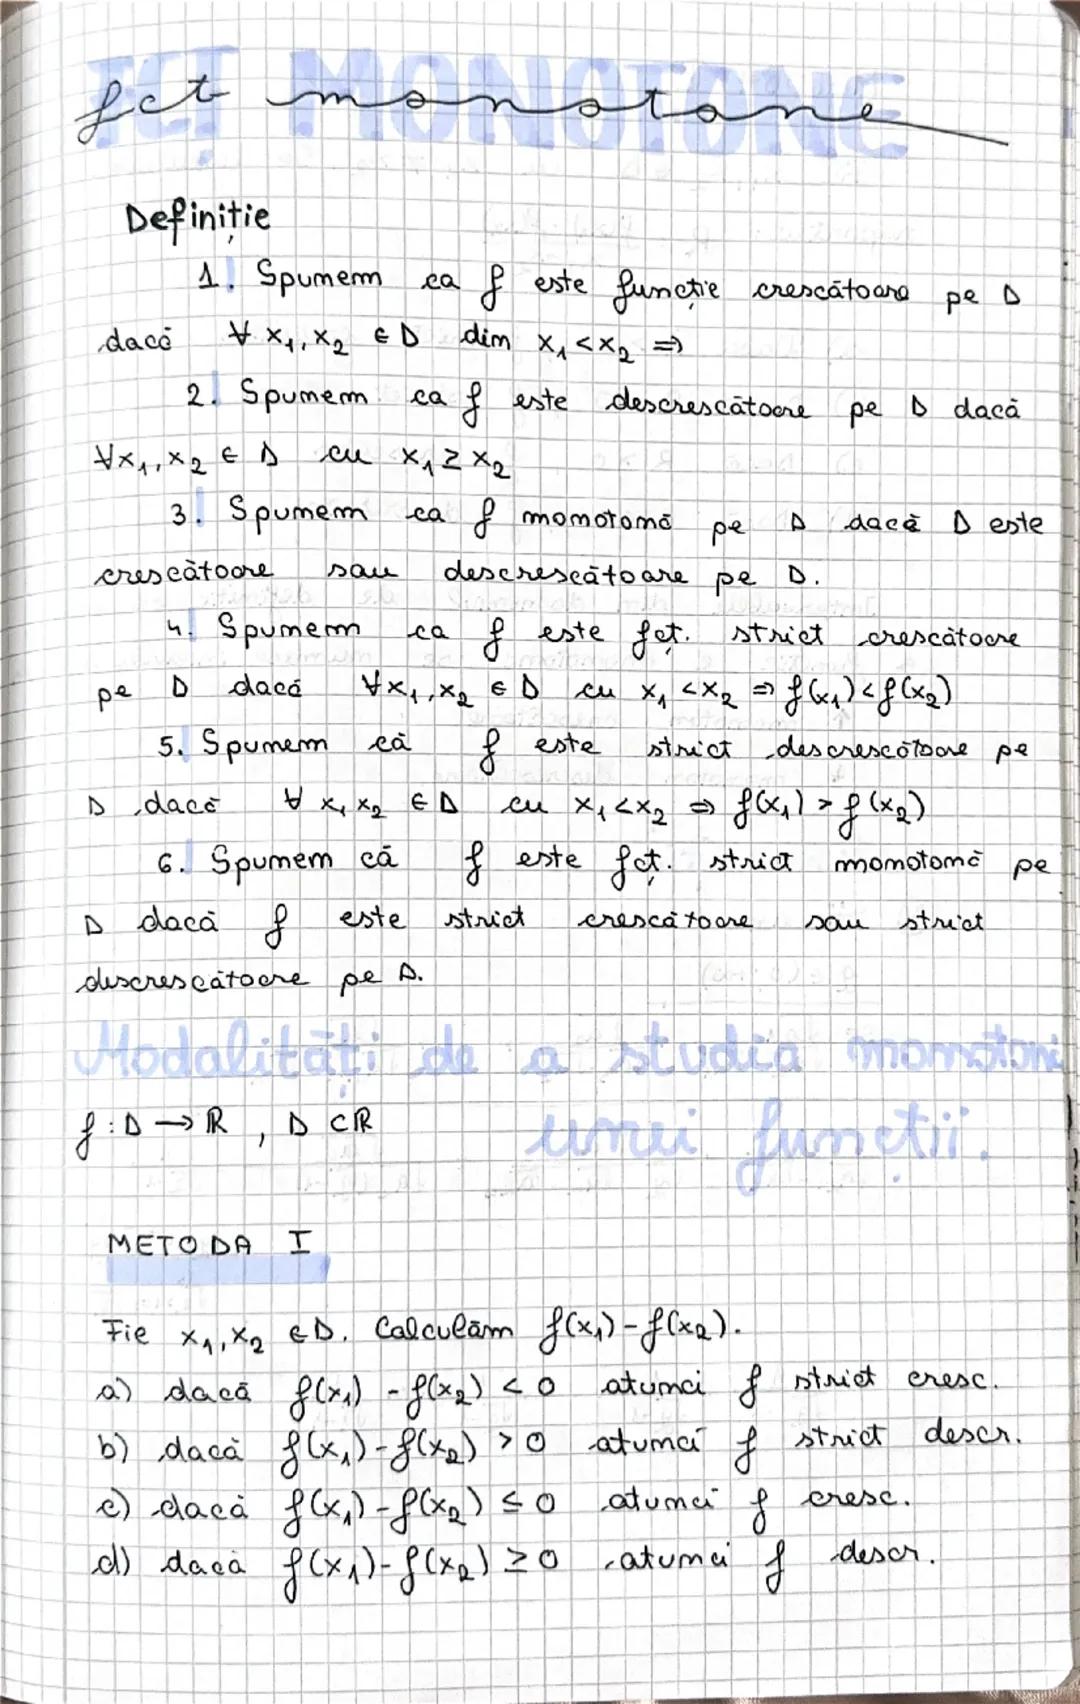 FCT MONOTONE
fct monotone
Definiție
1. Spunem ca f este funcție crescătoare pe D
dacă ∀ x₁, x₂ ∈ D din x₁ < x₂ ⇒
2. Spunem ca f este descrescătoare pe D dacă
∀x₁, x₂ ∈ D cu x₁ ≥ x₂
3. Spunem ca f monotonă pe D dacă D este
crescătoare sau descrescătoare pe D.
4. Spunem ca f este fcț. strict crescătoare
pe D dacă ∀x₁, x₂ ∈ D cu x₁ < x₂ ⇒ f(x₁) < f(x₂)
5. Spunem că f este strict descrescătoare pe
D dacă ∀ x₁ x₂ ∈ D cu x₁ < x₂ ⇒ f(x₁) > f(x₂)
6. Spunem că f este fcț. strict monotonă pe
D dacă f este strict crescătoare sau strict
discrescătoare pe D.
Modalități de a studia monotoni
unei funcții.
f : D → ℝ , D ⊂ ℝ
METODA I
Fie x₁, x₂ ∈ D. Calculăm f(x₁) - f(x₂).
a) dacă f(x₁) - f(x₂) < 0 atunci f strict cresc.
b) dacă f(x₁) - f(x₂) > 0 atunci f strict descr.
c) dacă f(x₁) - f(x₂) ≤ 0 atunci f cresc.
d) dacă f(x₁) - f(x₂) ≥ 0 atunci f descr.